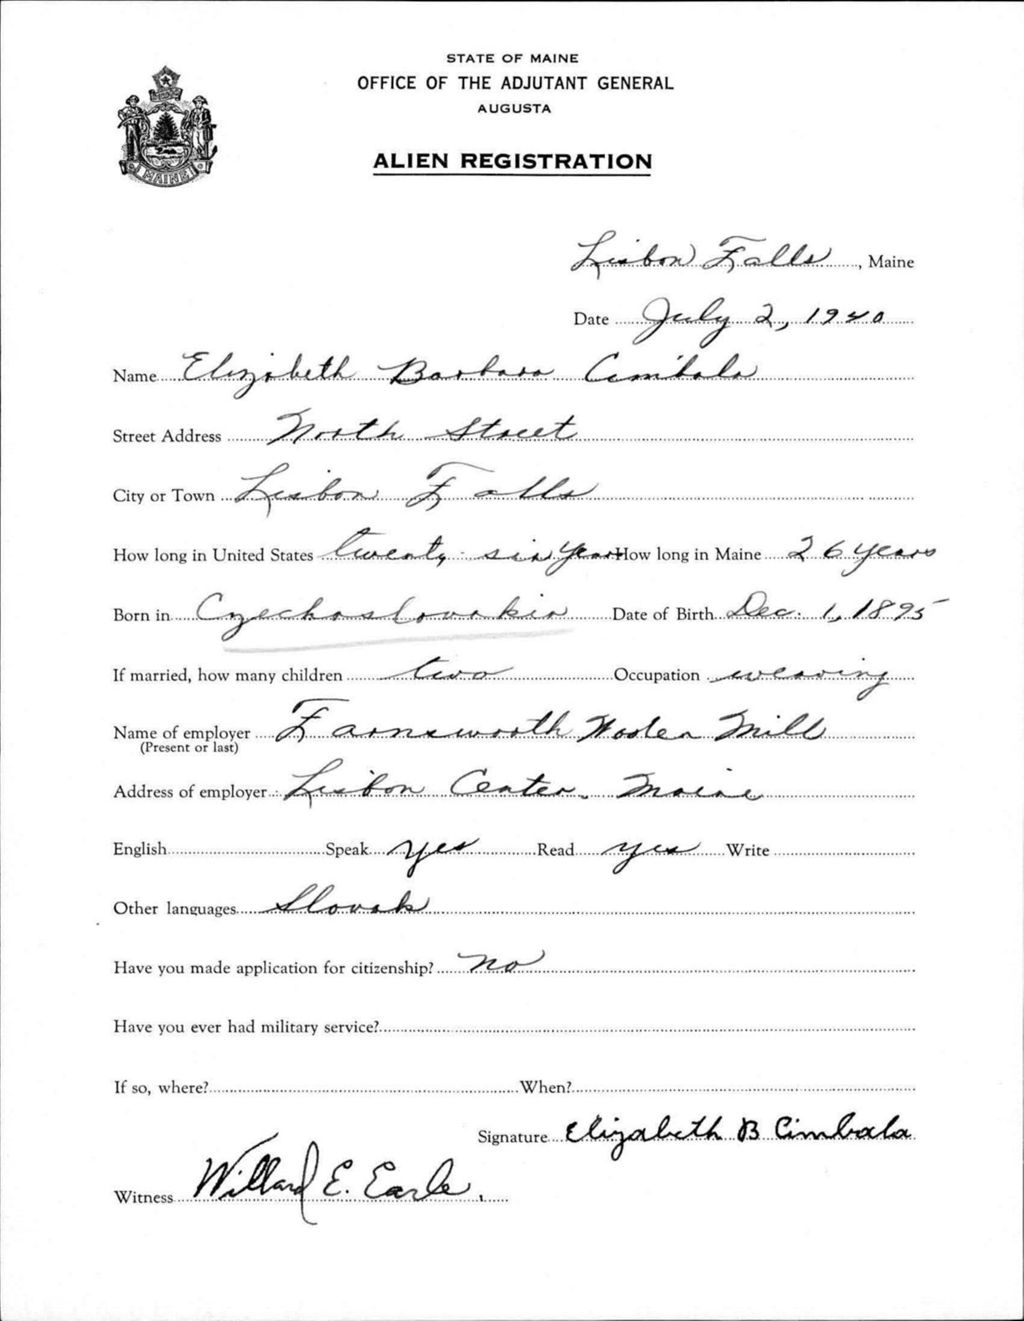 STATE OF MAINE
OFFICE OF THE ADJUTANT GENERAL
AUGUSTA
ALIEN REGISTRATION
MAINE
Lisbon Falls, Maine
Date July 2, 1940
Name Elizabeth Barbara Cimbala
Street Address North Street
City or Town Lisbon Falls
How long in United States twenty six years How long in Maine 26 years
Born in Czechoslovakia Date of Birth Dec. 1, 1895
If married, how many children two Occupation weaving
Name of employer Farnsworth Woolen Mill
(Present or last)
Address of employer Lisbon Center, Maine
English Speak yes Read yes Write
Other languages Slovak
Have you made application for citizenship? no
Have you ever had military service?
If so, where? When?
Signature Elizabeth B Cimbala
Witness Willard E. Earle